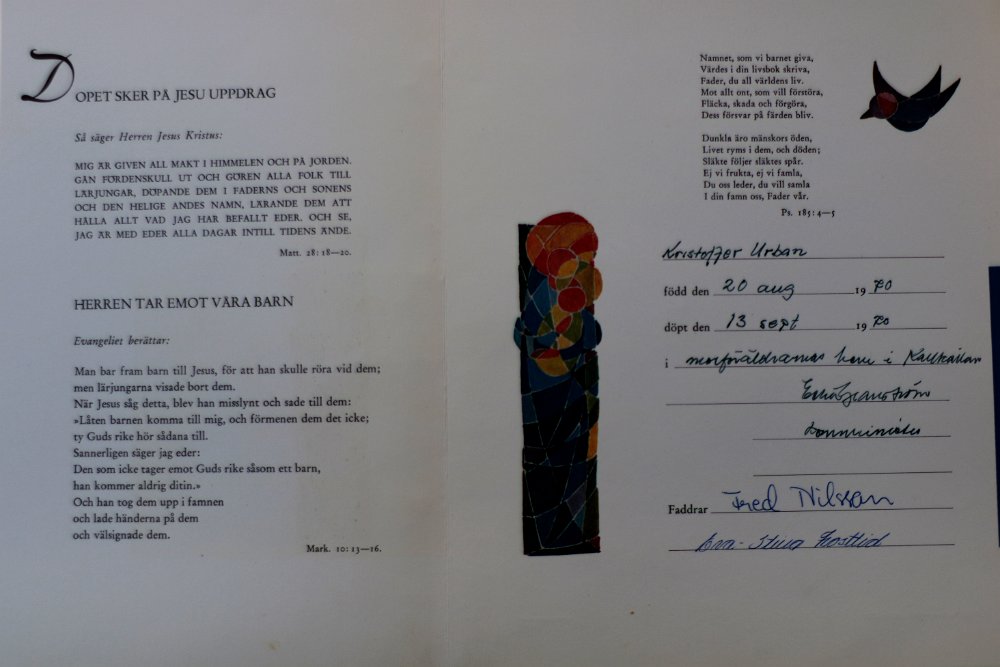 DOPET SKER PÅ JESU UPPDRAG
Så säger Herren Jesus Kristus:
MIG ÄR GIVEN ALL MAKT I HIMMELEN OCH PÅ JORDEN.
GÅN FÖRDENSKULL UT OCH GÖREN ALLA FOLK TILL
LÄRJUNGAR, DÖPANDE DEM I FADERNS OCH SONENS
OCH DEN HELIGE ANDES NAMN, LÄRANDE DEM ATT
HÅLLA ALLT VAD JAG HAR BEFALLT EDER. OCH SE,
JAG ÄR MED EDER ALLA DAGAR INTILL TIDENS ÄNDE.
Matt. 28:18—20.
HERREN TAR EMOT VÅRA BARN
Evangeliet berättar:
Man bar fram barn till Jesus, för att han skulle röra vid dem;
men lärjungarna visade bort dem.
När Jesus såg detta, blev han misslynt och sade till dem:
»Låten barnen komma till mig, och förmenen dem det icke;
ty Guds rike hör sådana till.
Sannerligen säger jag eder:
Den som icke tager emot Guds rike såsom ett barn,
han kommer aldrig ditin.»
Och han tog dem upp i famnen
och lade händerna på dem
och välsignade dem.
Mark. 10:13—16.
Namnet, som vi barnet giva,
Värdes i din livsbok skriva,
Fader, du all världens liv.
Mot allt ont, som vill förstöra,
Fläcka, skada och förgöra,
Dess försvar på färden bliv.
Dunkla äro mänskors öden,
Livet ryms i dem, och döden;
Släkte följer släktes spår.
Ej vi frukta, ej vi famla,
Du oss leder, du vill samla
I din famn oss, Fader vår.
Ps. 185:4—5
Kristoffer Urban
född den 20 aug 1970
döpt den 13 sept 1970
i morföräldrarnas hem i
Komminister
Faddrar Fred Nilsson
Eva-Stina